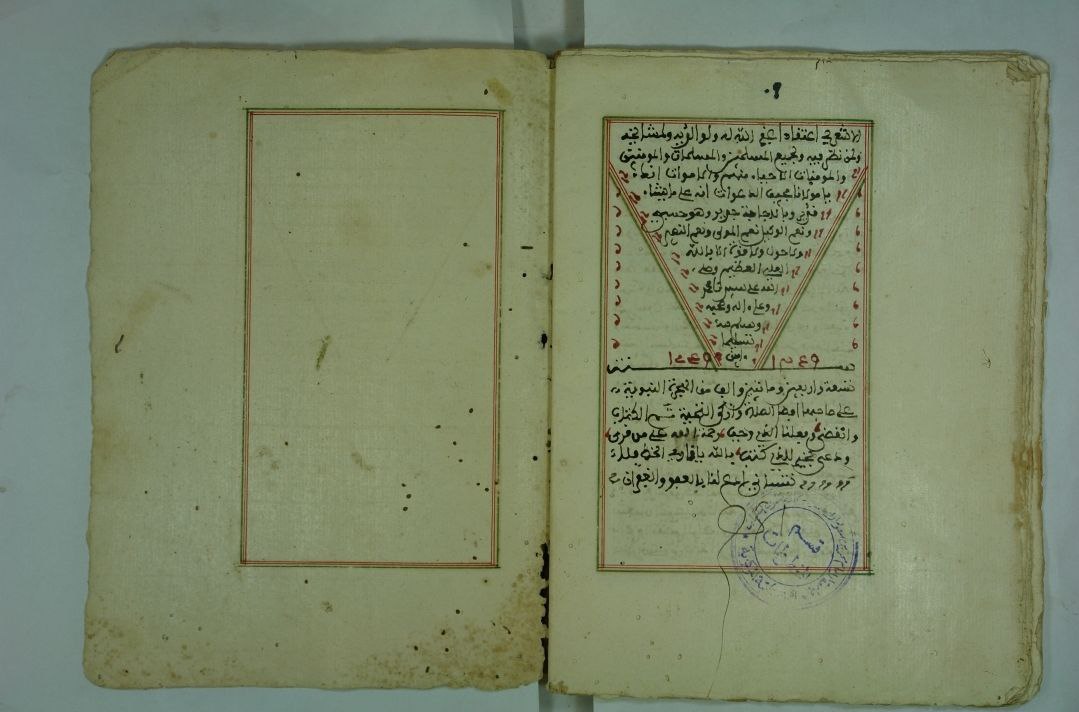 ٩٠
الاشعري اعتقادا غفر الله له ولوالديه ولمشائخه
ولمن نظر فيه ولجميع المسلمين والمسلمات والمومنين
والمومنات الاحياء منهم والاموات انك
يا مولانا مجيب الدعوات انه على ما يشاء
قدير وبالاجابة جدير وهو حسبي
ونعم الوكيل نعم المولى ونعم النصير
ولا حول ولا قوة الا بالله
العلي العظيم وصلى
الله على سيدنا محمد
وعلى اله وصحبه
وسلم
تسليما
١٢٤٩ سنة ١٢٤٩
تسعة واربعين ومائتين والف من الهجرة النبوية
على صاحبها افضل الصلاة وازكى التحية تم الكتاب
وانقضى رحمة الله على من قرى
ودعى للذي كتب بالله يا قارئ الخط قل
بالعفو والغفران
قسم